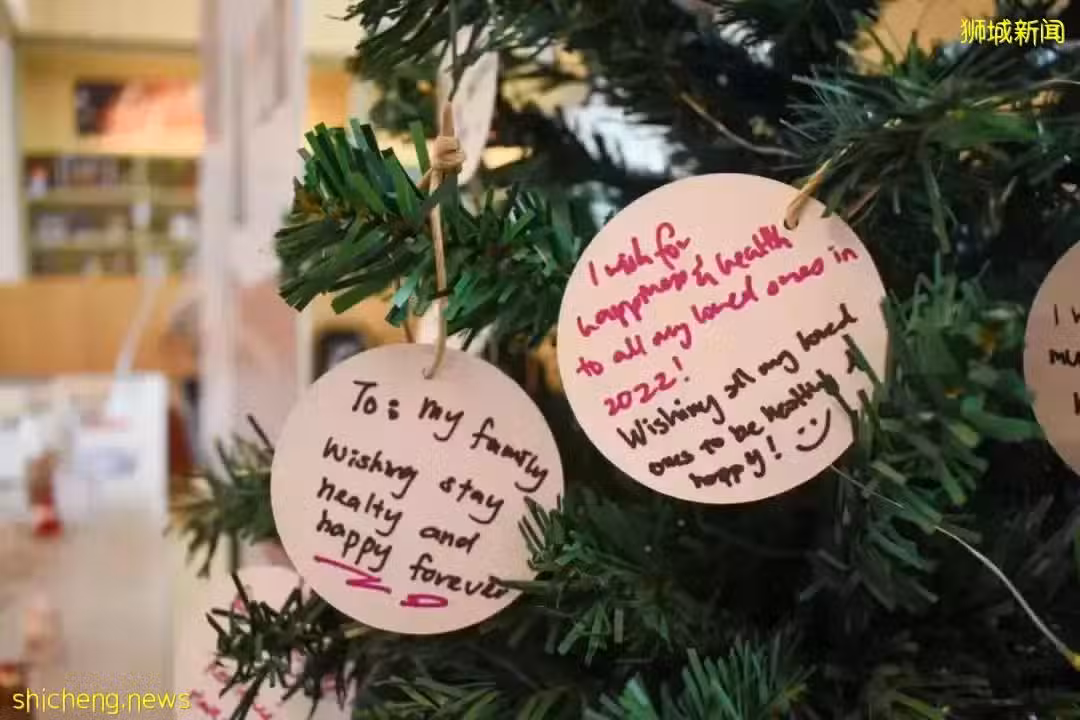 狮城新闻
To: my family
Wishing stay
healty and
happy forever
I wish for
happiness & health
to all my loved ones in
2022!
Wishing all my loved
ones to be healthy &
happy! :)
I
mu
shicheng.news